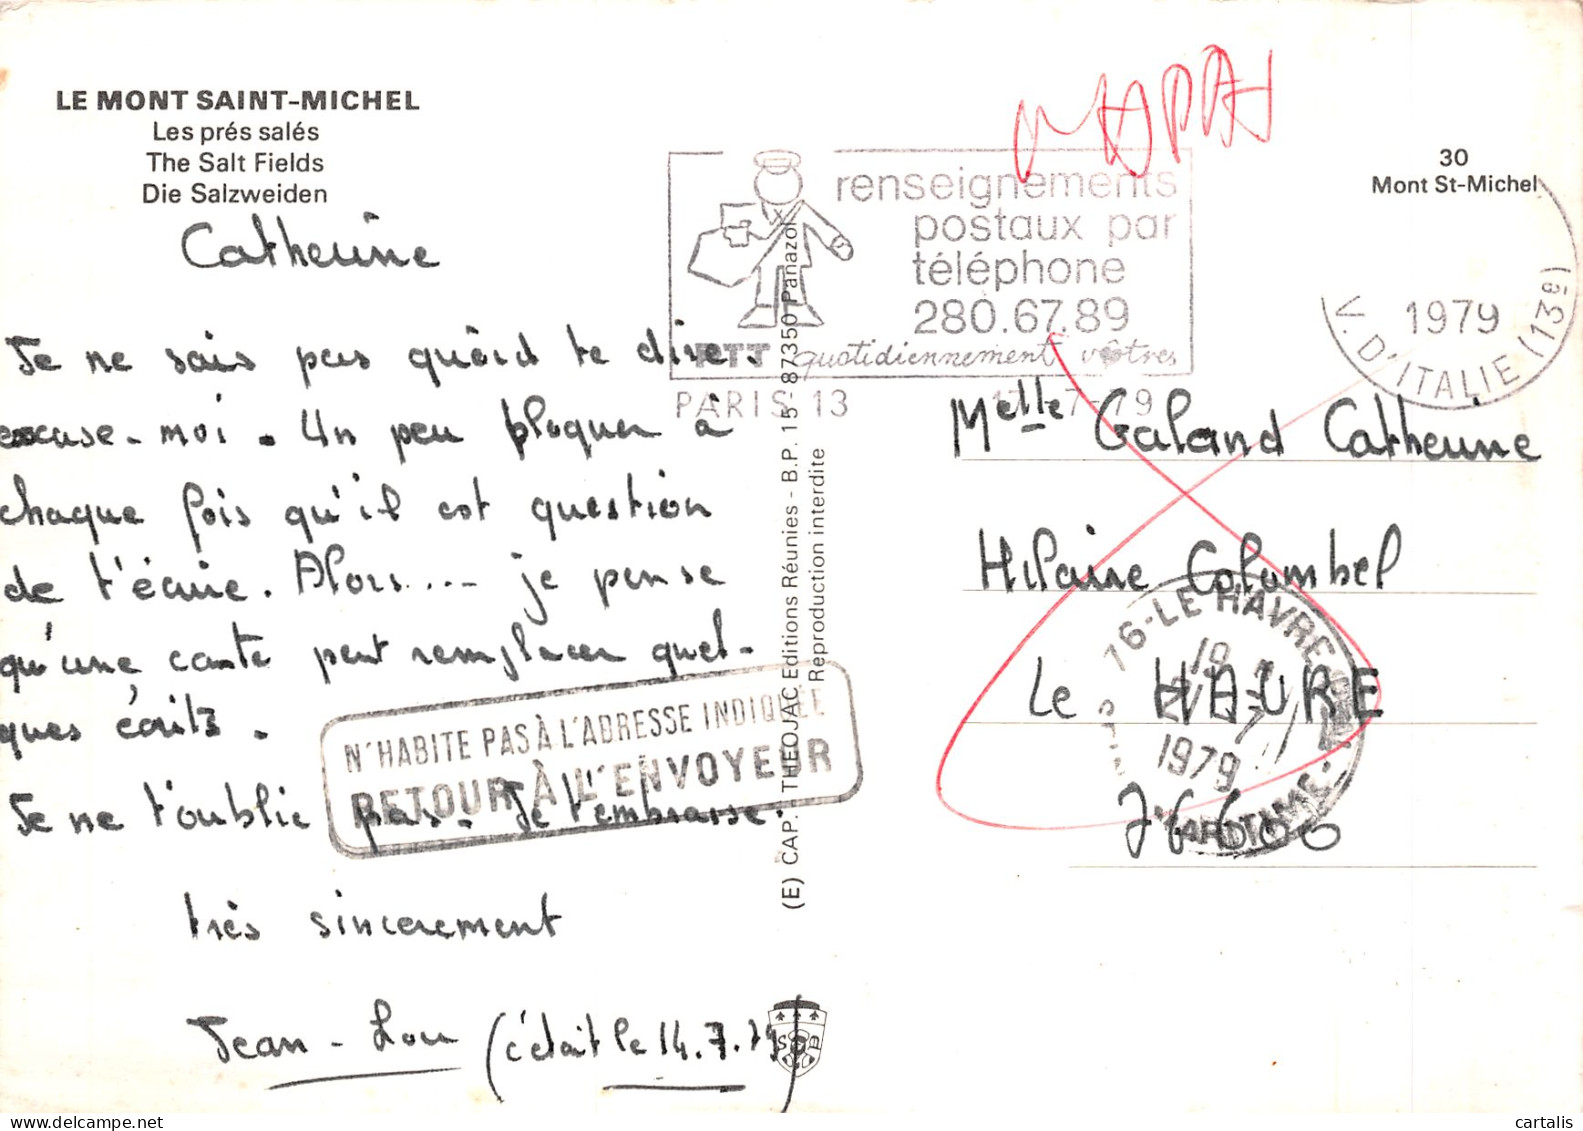 LE MONT SAINT-MICHEL
Les prés salés
The Salt Fields
Die Salzweiden
Catherine
Je ne sais pas quoid te dire.
excuse-moi. Un peu bloquer à
chaque fois qu'il est question
de t'écrire. Alors.... je pense
qu'une carte peut remplacer quel-
ques écrits.
Je ne t'oublie pas. Je t'embrasse.
très sincerement
Jean-Lou (c'était le 14.7.79)
N'HABITE PAS À L'ADRESSE INDIQUÉE
RETOUR À L'ENVOYEUR
(E) CAP. THEOJAC Editions Réunies - B.P. 15 - 87350 Panazol
Reproduction interdite
renseignements
postaux par
téléphone
280.67.89
PTT quotidiennement vôtres
PARIS 13
7-79
1979
V. D'ITALIE (13e)
30
Mont St-Michel
Melle Galand Catherine
Hilaire Colombel
Le HAVRE
76600
76-LE HAVRE
19
1979
MARITIME
cartalis